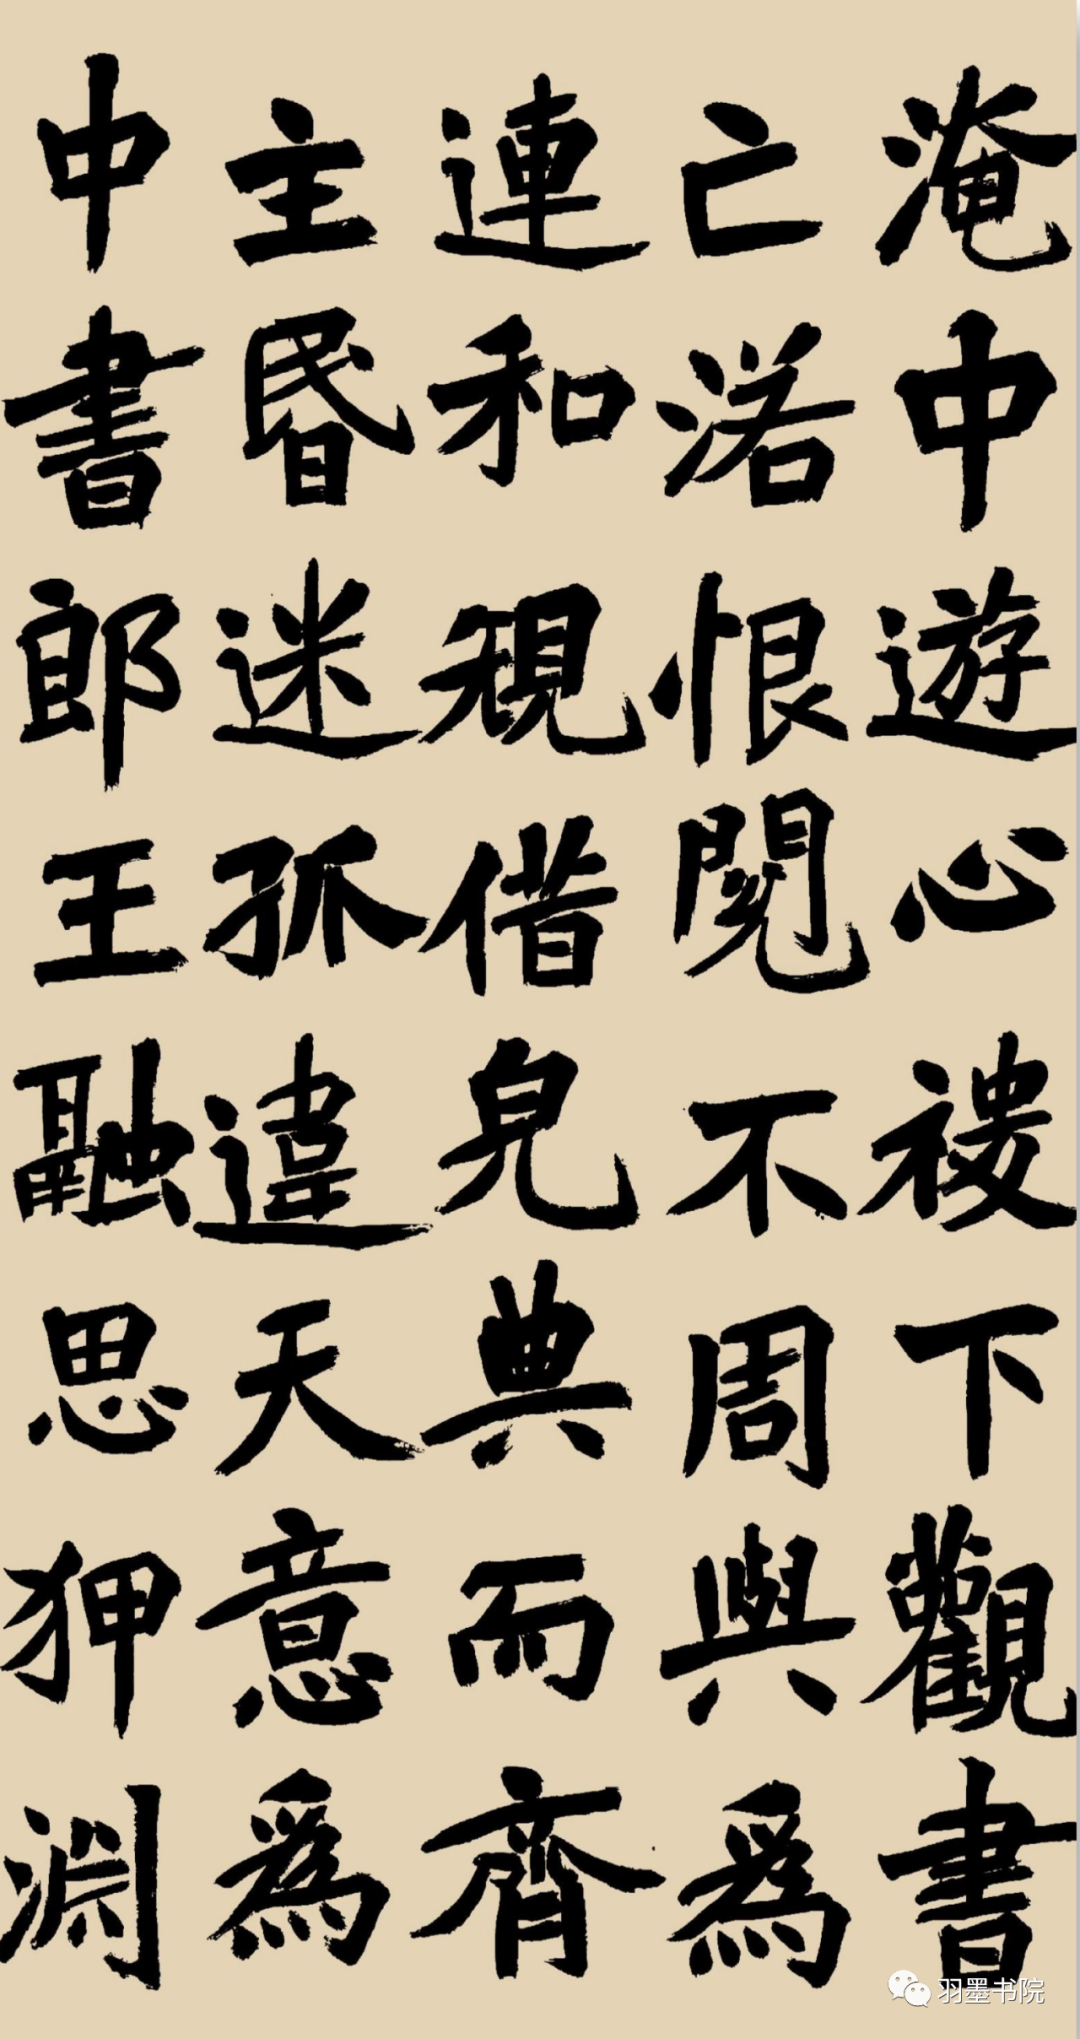 淹中遊心稷下觀書
亡渃恨閱不周與為
連和規借皃典而齊
主昬迷孤違天意為
中書郎王融思狎淵
羽墨书院